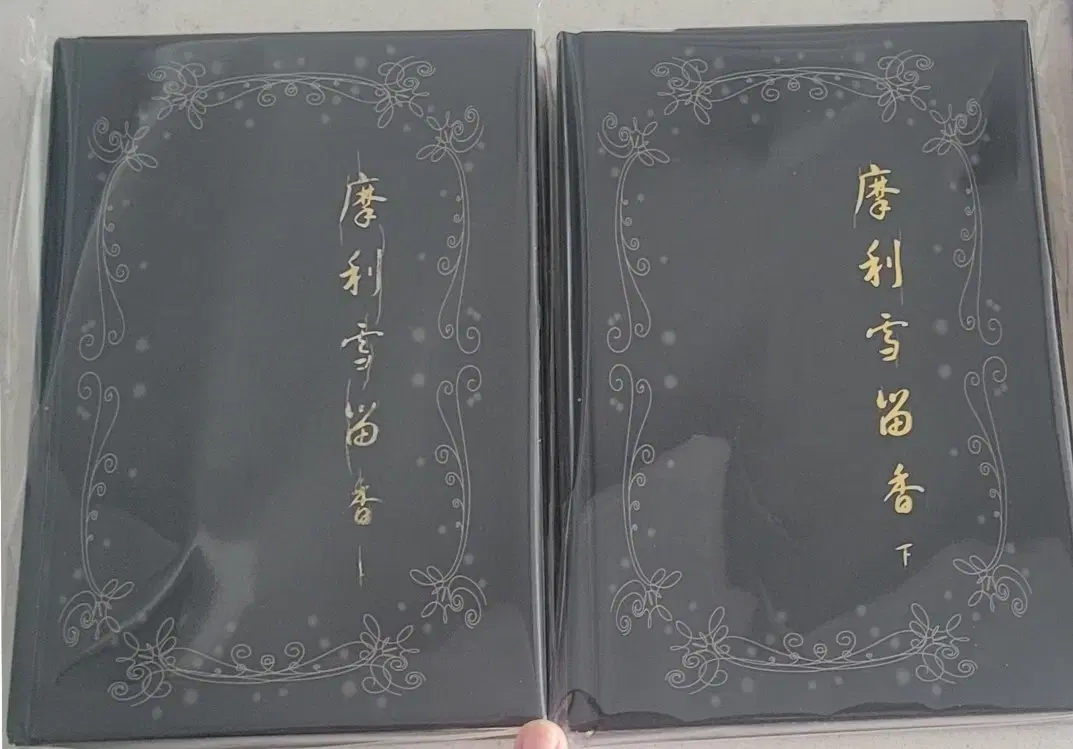 摩利雪留香
上
摩利雪留香
下